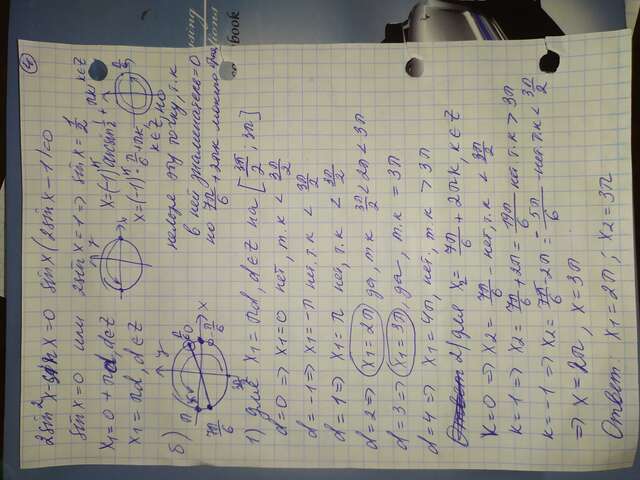 ④
2sin²x - sin x = 0 sin x(2sin x - 1) = 0
sin x = 0 или 2sin x = 1 => sin x = 1/2
x₁ = 0 + πd, d∈Z x = (-1)ᵏ arcsin 1/2 + πk, k∈Z
x₁ = πd, d∈Z x = (-1)ᵏ · π/6 + πk, k∈Z, но
нельзя эту точку, т.к
в ней знаменатель = 0
но 7π/6 + 2πk можно
б)
1) для x₁ = πd, d∈Z на [3π/2; 3π]
d=0 => x₁ = 0 нет, т.к < 3π/2
d=-1 => x₁ = -π нет, т.к < 3π/2
d=1 => x₁ = π нет, т.к < 3π/2
d=2 => x₁ = 2π да, т.к 3π/2 < 2π < 3π
d=3 => x₁ = 3π, да, т.к = 3π
d=4 => x₁ = 4π, нет, т.к > 3π
2) для x₂ = 7π/6 + 2πk, k∈Z
k=0 => x₂ = 7π/6 - нет, т.к < 3π/2
k=1 => x₂ = 7π/6 + 2π = 19π/6 нет т.к > 3π
k=-1 => x₂ = 7π/6 - 2π = -5π/6 - нет т.к < 3π/2
=> x = 2π, x = 3π
Ответ: x₁ = 2π; x₂ = 3π
book